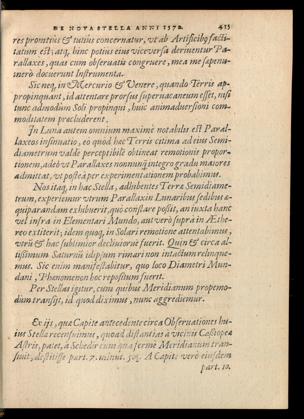 DE NOVA STELLA ANNI 1572. 415
res promtius & tutius concernatur, vt ab Artificibus factitatum
est; atq; hinc potius eius viceversa deriventur Parallaxes,
quas cum observatis congruere, mea me sæpenumerò
docuerunt Instrumenta.
Sic neq; in Mercurio & Venere, quando Terris appropinquant,
id attentare prorsus supervacaneum esset, nisi
tunc admodum Soli propinqui, huic animadversioni commoditatem
præcluderent.
In Luna autem omnium maximè notabilis est Parallaxeos
insinuatio, eo quod hæc Terræ citima ad eius Semidiametrum
valde perceptibilē obtineat remotionis proportionem,
adeò vt Parallaxes nonnunq̃ integro gradu maiores
admittat, vt postea per experimentationem probabimus.
Nos itaq; in hac Stella, adhibentes Terræ Semidiametrum,
experiemur vtrum Parallaxin Lunaribus sedibus æquiparandam
exhibuerit, quò constare possit, an iuxta hanc
vel infra in Elementari Mundo, aut verò supra in Æthereo
extiterit; idem quoq; in Solari remotione attentabimus,
vtrū & hac sublimior declinaverit fuerit. Quin & circa altissimum
Saturnū idipsum rimari non intactum relinquemus.
Sic enim manifestabitur, quo loco Diametri Mundani,
Phænomenon hoc repositum fuerit.
Per Stellas igitur, cum quibus Meridianum propemodum
transijt, id quod diximus, nunc aggrediemur.
Ex ijs, quæ Capite antecedente circa Observationes huius
Stellæ recensuimus, quoad distantias à vicinis Cassiopeæ
Astris, patet, à Schedir cum qua fermè Meridianum transiuit,
destitisse part. 7. minut. 50⅔. A Capite verò eiusdem
part. 10.